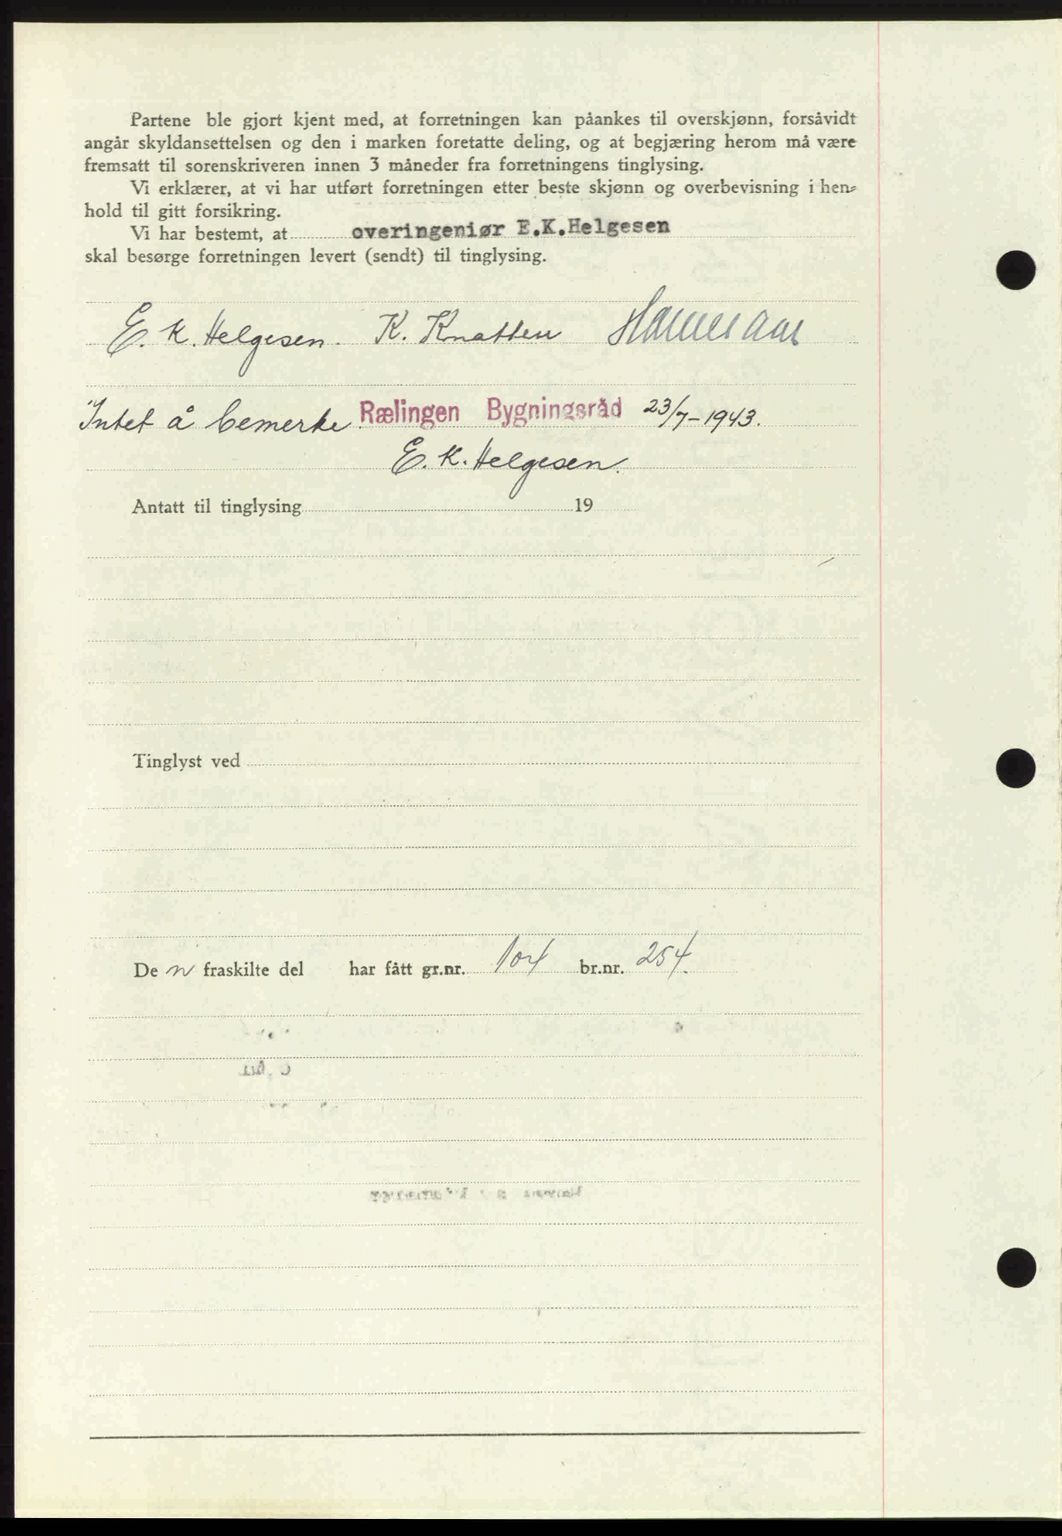 Partene ble gjort kjent med, at forretningen kan påankes til overskjønn, forsåvidt
angår skyldansettelsen og den i marken foretatte deling, og at begjæring herom må være
fremsatt til sorenskriveren innen 3 måneder fra forretningens tinglysing.
Vi erklærer, at vi har utført forretningen etter beste skjønn og overbevisning i hen-
hold til gitt forsikring.
Vi har bestemt, at overingeniør E.K.Helgesen
skal besørge forretningen levert (sendt) til tinglysing.
E. K. Helgesen. K. Knatten
Intet å bemerke Rælingen Bygningsråd 23/7-1943.
E. K. Helgesen.
Antatt til tinglysing 19
Tinglyst ved
De n fraskilte del har fått gr.nr. 104 br.nr. 254.